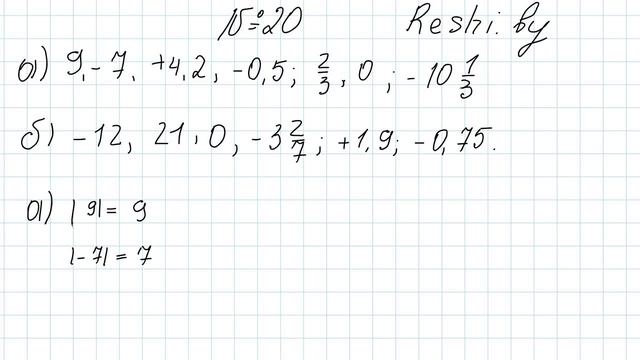 №20 Reshi.by
а) 9, -7, +4,2, -0,5; 2/3, 0; -10 1/3
б) -12, 21, 0, -3 2/7; +1,9; -0,75.
а) |9| = 9
|-7| = 7